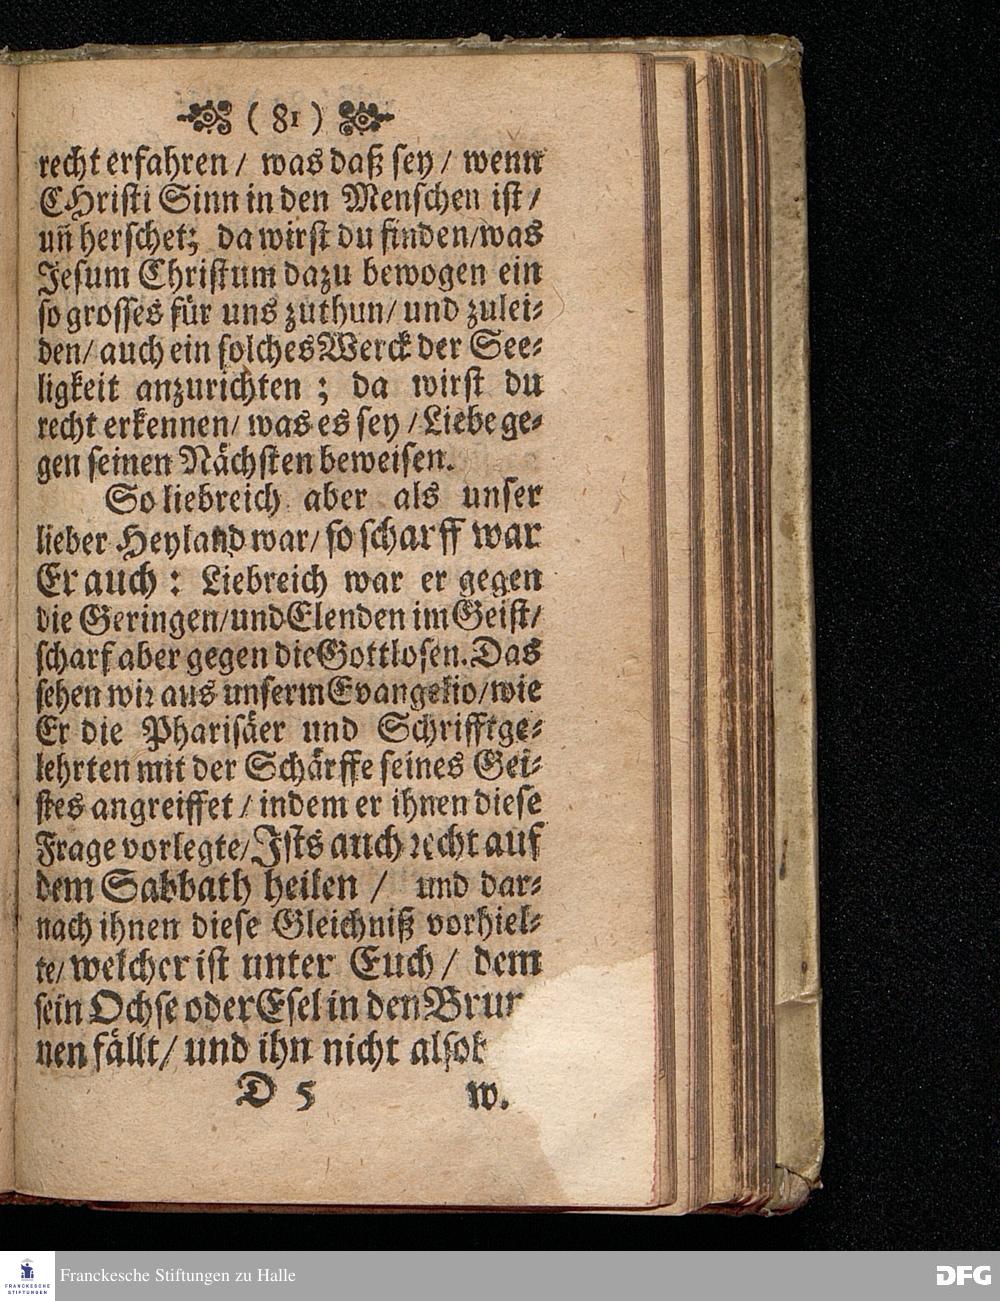 ( 81 )
recht erfahren / was daß sey / wenn
CHristi Sinn in den Menschen ist /
uñ herschet; da wirst du finden / was
Jesum Christum dazu bewogen ein
so grosses für uns zuthun / und zulei-
den / auch ein solches Werck der See-
ligkeit anzurichten ; da wirst du
recht erkennen / was es sey / Liebe ge-
gen seinen Nächsten beweisen.
So liebreich aber als unser
lieber Heyland war / so scharff war
Er auch : Liebreich war er gegen
die Geringen / und Elenden im Geist /
scharf aber gegen die Gottlosen. Das
sehen wir aus unserm Evangelio / wie
Er die Pharisäer und Schrifftge-
lehrten mit der Schärffe seines Gei-
stes angreiffet / indem er ihnen diese
Frage vorlegte / Jsts auch recht auf
dem Sabbath heilen / und dar-
nach ihnen diese Gleichniß vorhiel-
te / welcher ist unter Euch / dem
sein Ochse oder Esel in den Brun
nen fällt / und ihn nicht alsob
D 5 w.
FRANCKESCHE
STIFTUNGEN
Franckesche Stiftungen zu Halle
DFG